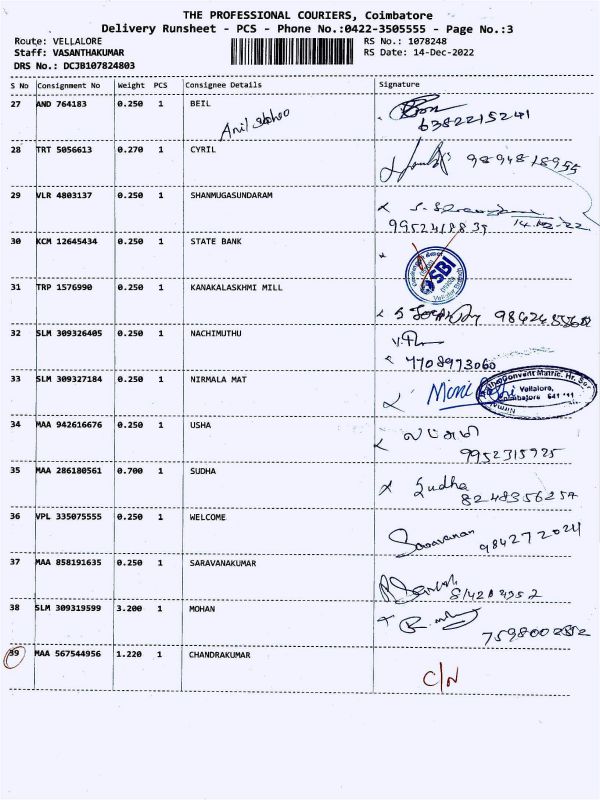 THE PROFESSIONAL COURIERS, Coimbatore
Delivery Runsheet - PCS - Phone No.:0422-3505555 - Page No.:3
Route: VELLALORE RS No.: 1078248
Staff: VASANTHAKUMAR RS Date: 14-Dec-2022
DRS No.: DCJB107824803
S No Consignment No Weight PCS Consignee Details Signature
27 AND 764183 0.250 1 BEIL
Anil 6382215241
28 TRT 5056613 0.270 1 CYRIL 9894818955
29 VLR 4803137 0.250 1 SHANMUGASUNDARAM
9952418839 14.12.22
30 KCM 12645434 0.250 1 STATE BANK
SBI
31 TRP 1576990 0.250 1 KANAKALASKHMI MILL
32 SLM 309326405 0.250 1 NACHIMUTHU
7708973060
33 SLM 309327184 0.250 1 NIRMALA MAT
Convent Matric. Hr. Sec
Vellalore,
34 MAA 942616676 0.250 1 USHA
லட்சுமி
9952315925
35 MAA 286180561 0.700 1 SUDHA Sudha
8248356257
36 VPL 335075555 0.250 1 WELCOME
Saravanan 9842772024
37 MAA 858191635 0.250 1 SARAVANAKUMAR
38 SLM 309319599 3.200 1 MOHAN
39 MAA 567544956 1.220 1 CHANDRAKUMAR
C/N